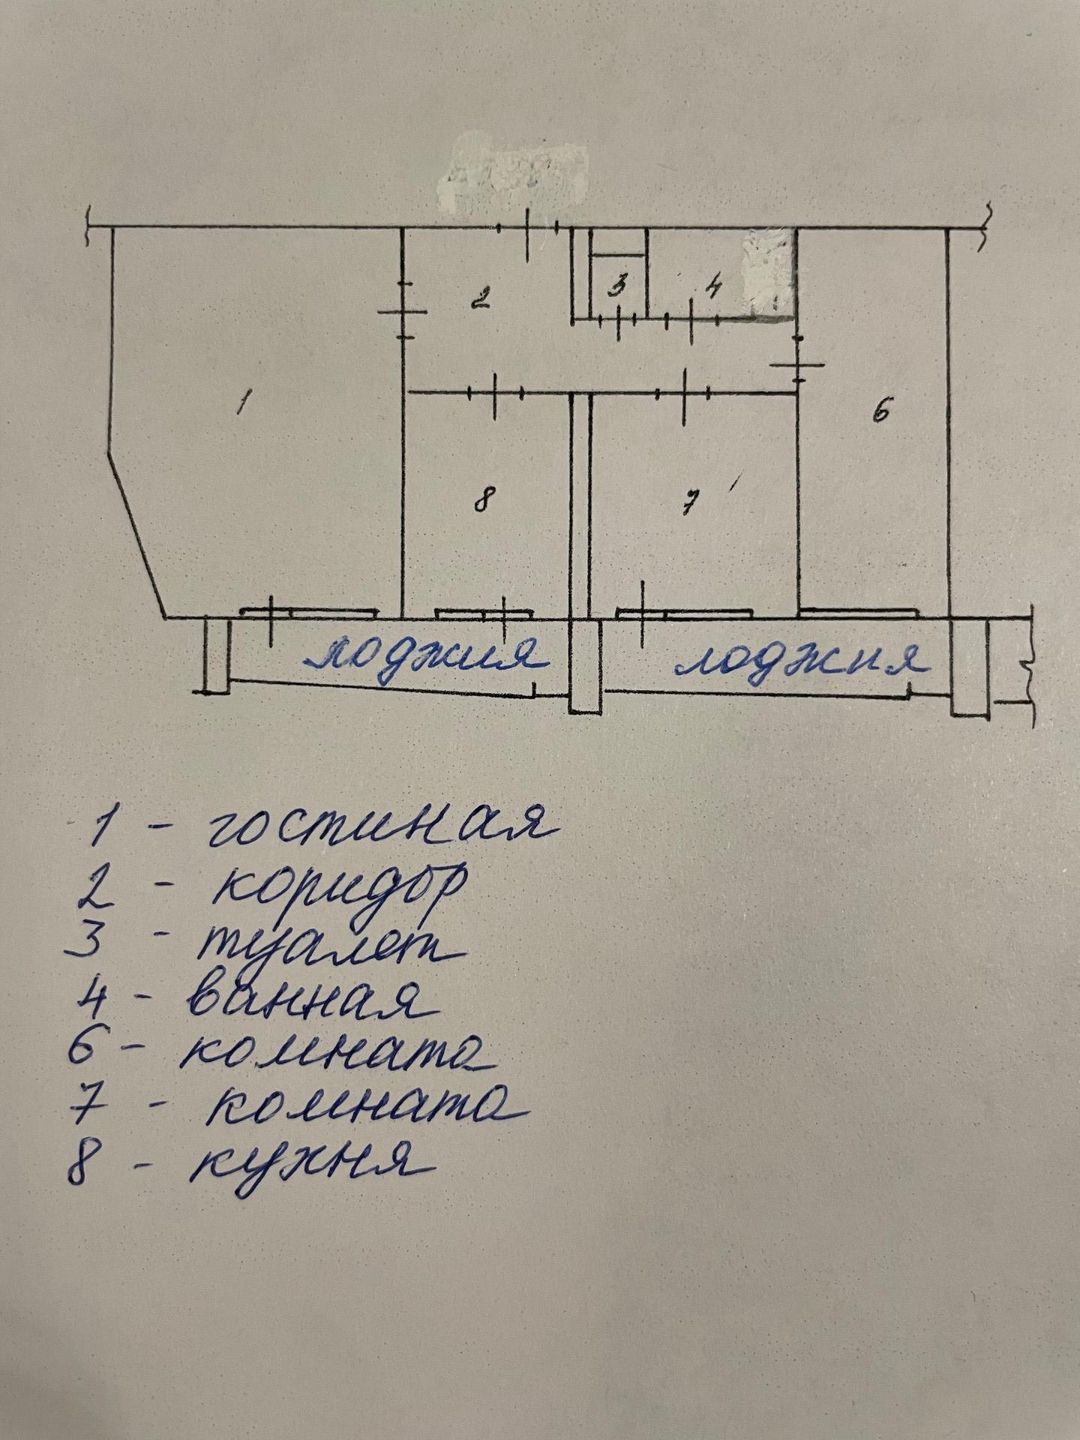 2
3
4
1
6
8
7
лоджия
лоджия
1 - гостиная
2 - коридор
3 - туалет
4 - ванная
6 - комната
7 - комната
8 - кухня